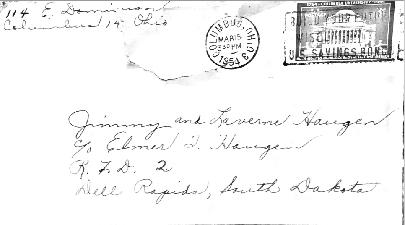 114 E. Dominion
Columbus 14 Ohio
COLUMBUS, OHIO
MAR 15
PM
1954
BUILD YOUR FUTURE
WISELY
U.S. SAVINGS BONDS
Jimmy and Laverne Haugen
c/o Elmer T. Haugen
R.F.D. 2
Dell Rapids, South Dakota